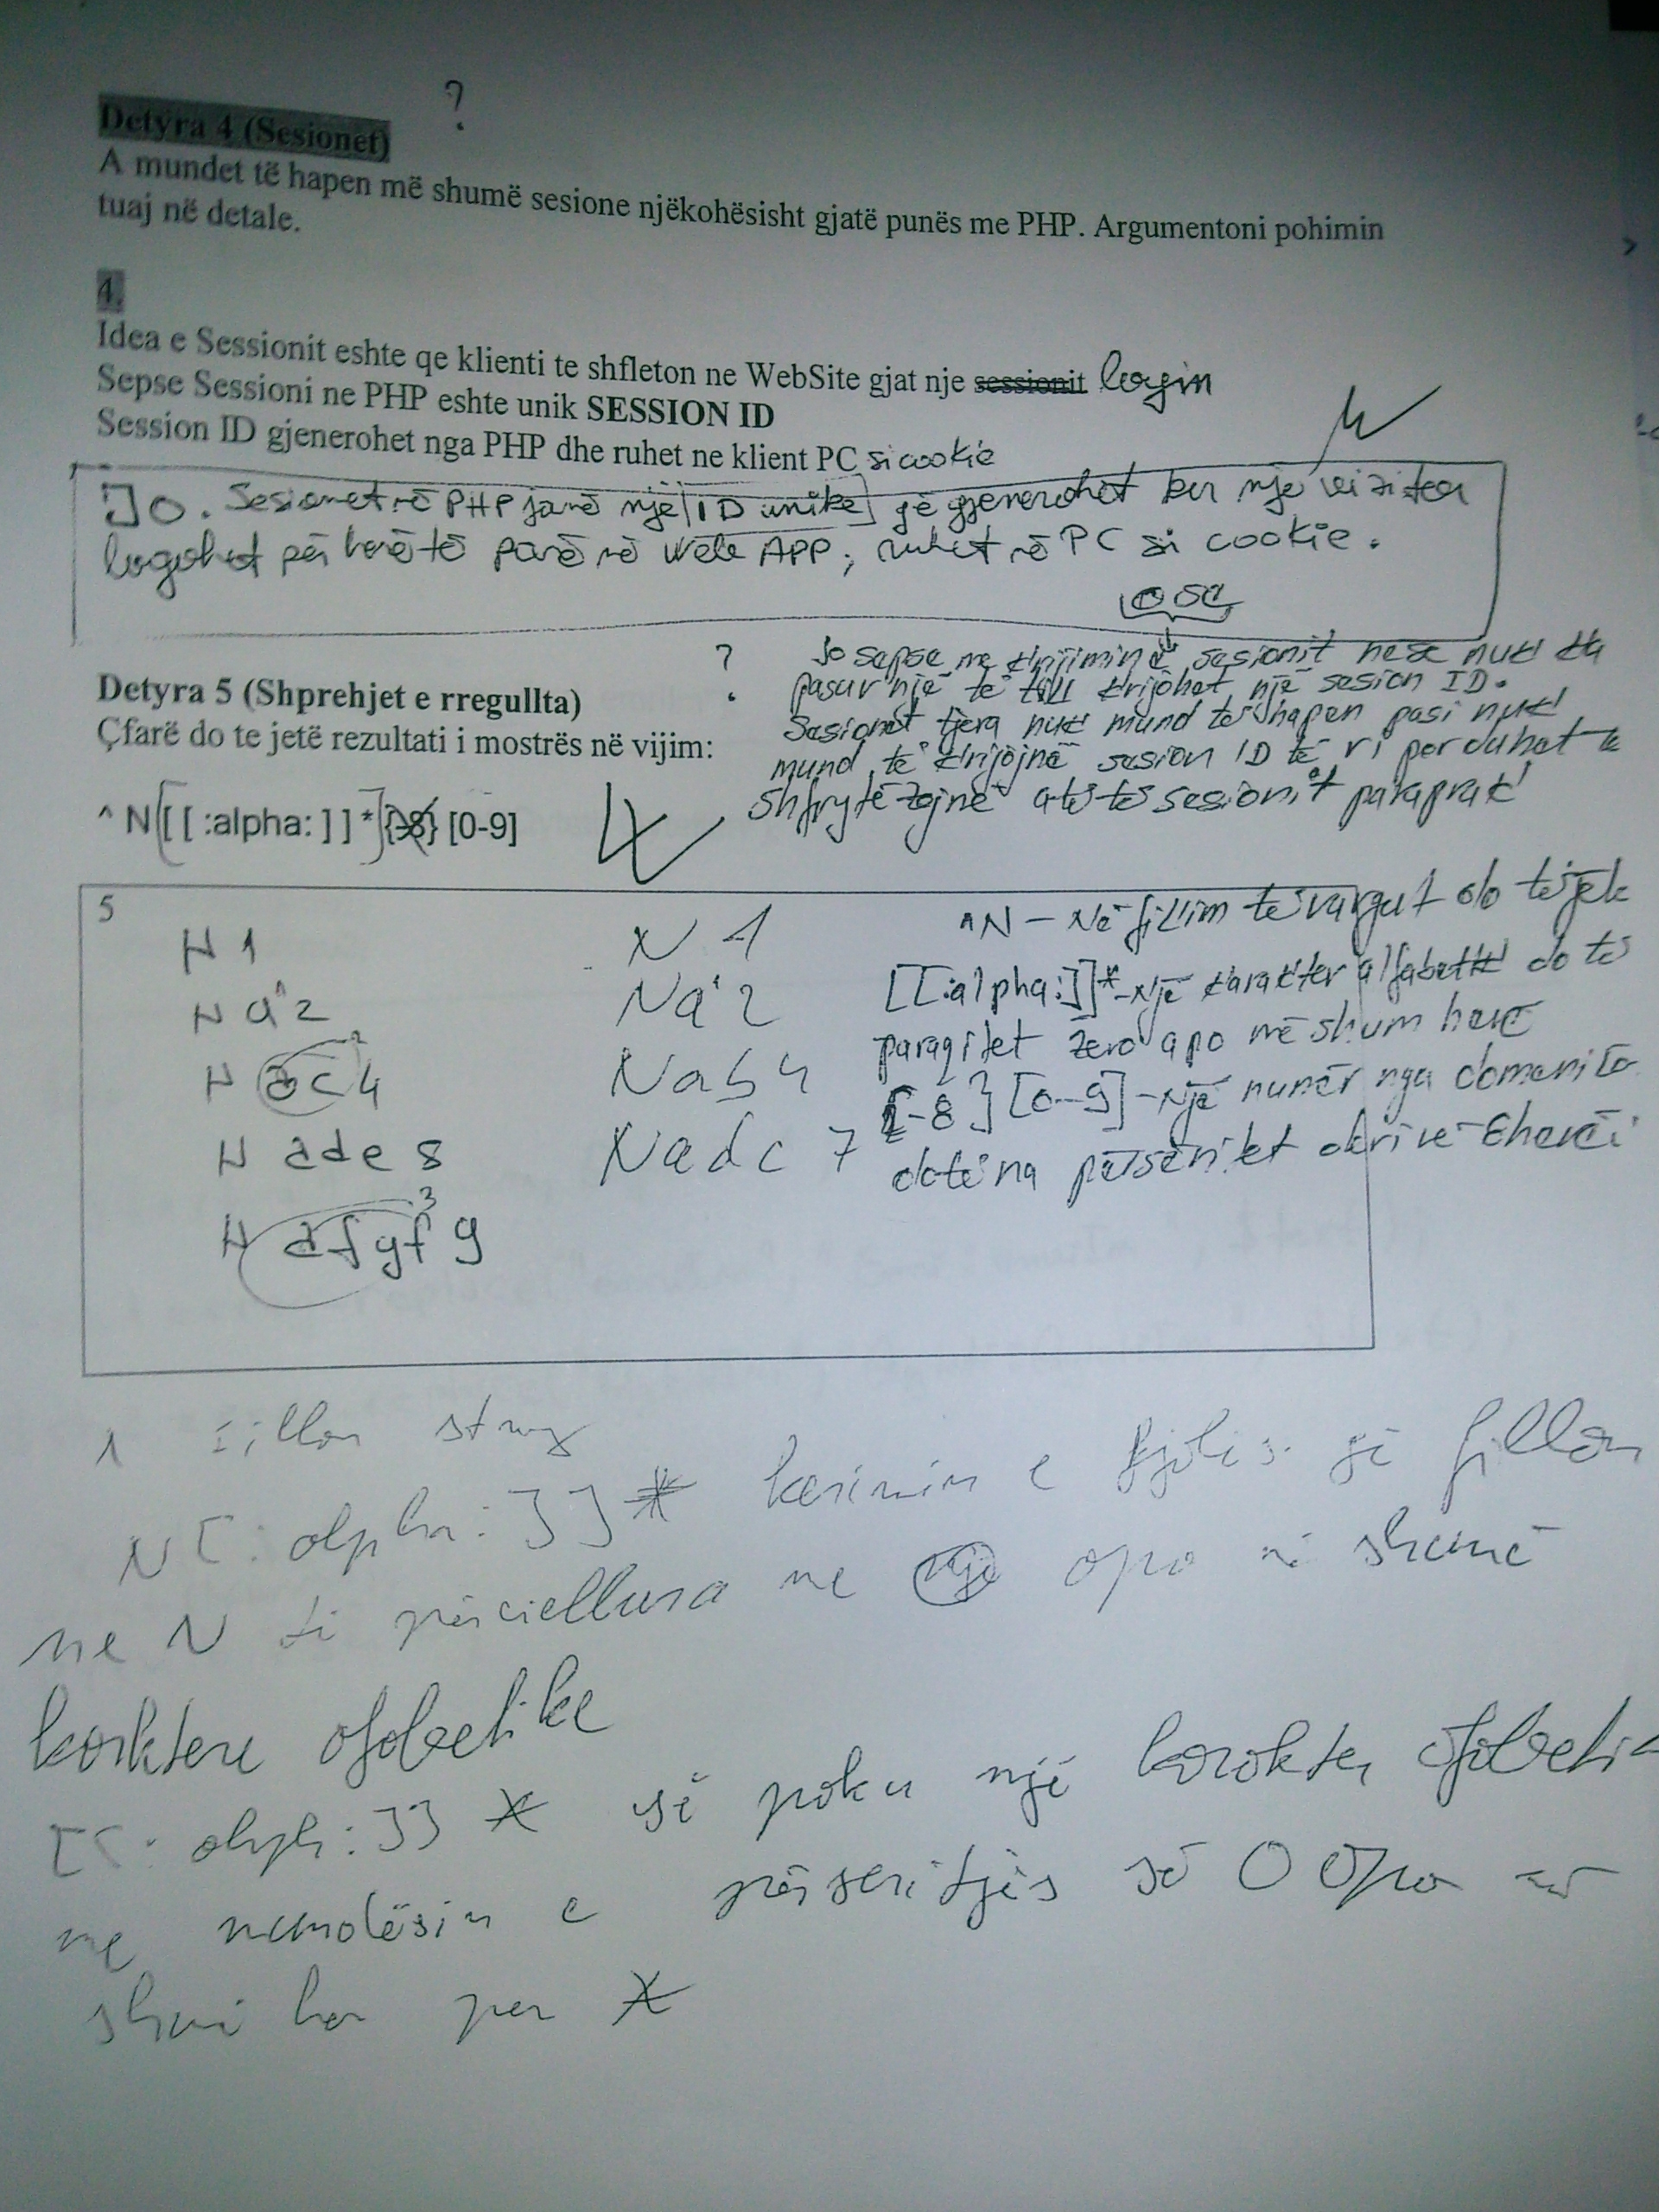 ?
Detyra 4 (Sesionet)
A mundet të hapen më shumë sesione njëkohësisht gjatë punës me PHP. Argumentoni pohimin
tuaj në detale.
4.
Idea e Sessionit eshte qe klienti te shfleton ne WebSite gjat nje sessionit login
Sepse Sessioni ne PHP eshte unik SESSION ID
Session ID gjenerohet nga PHP dhe ruhet ne klient PC si cookie
Jo. Sesionet në PHP janë një ID unike që gjenerohet kur një vizitor
logohet për herë të parë në Web APP; ruhet në PC si cookie.
ose
Jo sepse me krijimin e sesionit nese nuk ka
pasur një të till krijohet një sesion ID.
Sesionet tjera nuk mund të hapen pasi nuk
mund të krijojnë sesion ID të ri por duhet të
shfrytëzojnë atë të sesionit paraprak
?
Detyra 5 (Shprehjet e rregullta)
Çfarë do te jetë rezultati i mostrës në vijim:
^ N[[ :alpha: ]]* [0-9]
5
N 1
N a 2
N ac 4
N ade 8
N afgf 9
N 1
Na 2
Nab 4
Nadc 7
^N – Në fillim të vargut do të jetë
[[:alpha:]]* – Një karakter alfabetik do të
paraqitet zero apo më shum herë
-8} [0-9] – Një numër nga domeni
do të na përsëritet deri në 8 herë
fillon string
N[:alpha:]]* kërimin e fjalës që fillon
me N ti përcjellura me një apo më shumë
karktere alfabetike
[[:alph:]] * së paku një karakter alfabetik
me mundësin e përseritjës së 0 apo më
shum her per *